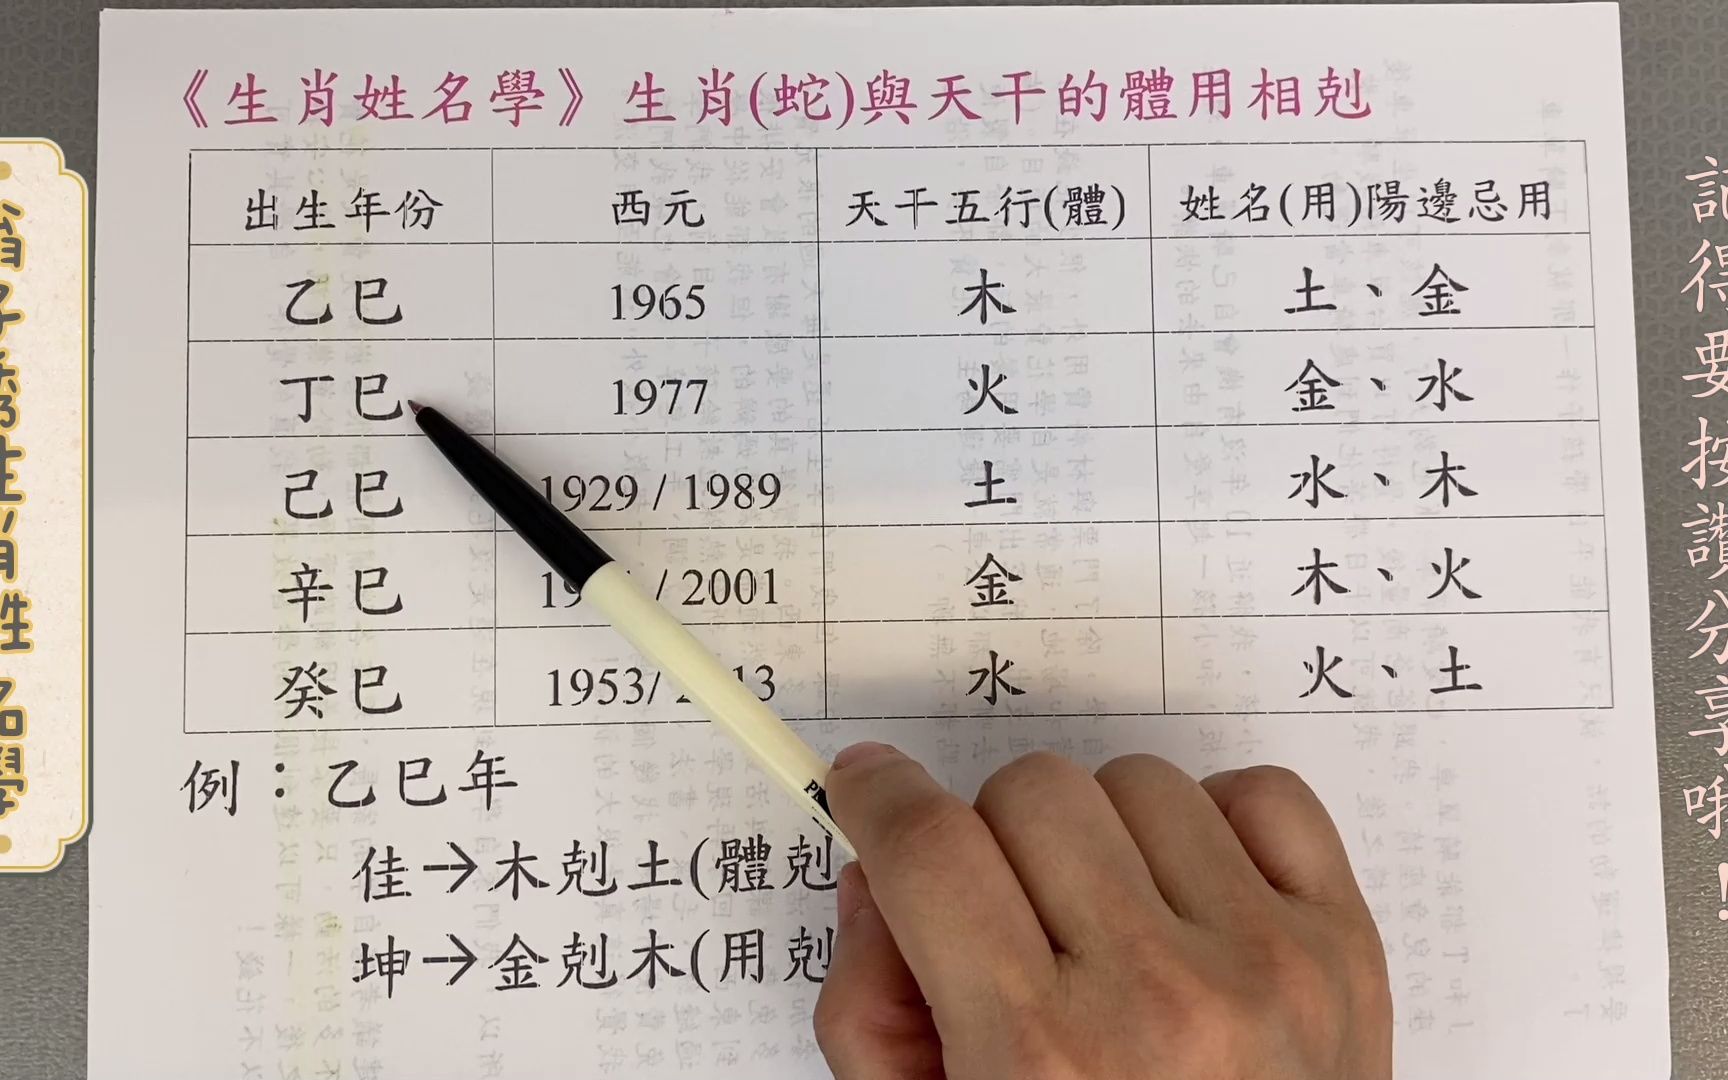 《生肖姓名學》生肖(蛇)與天干的體用相剋
出生年份 西元 天干五行(體) 姓名(用)陽邊忌用
乙巳 1965 木 土、金
丁巳 1977 火 金、水
己巳 1929 / 1989 土 水、木
辛巳 / 2001 金 木、火
癸巳 1953/ 水 火、土
例：乙巳年
佳→木剋土(體剋
坤→金剋木(用剋
生肖姓名學
記得要按讚分享哦！